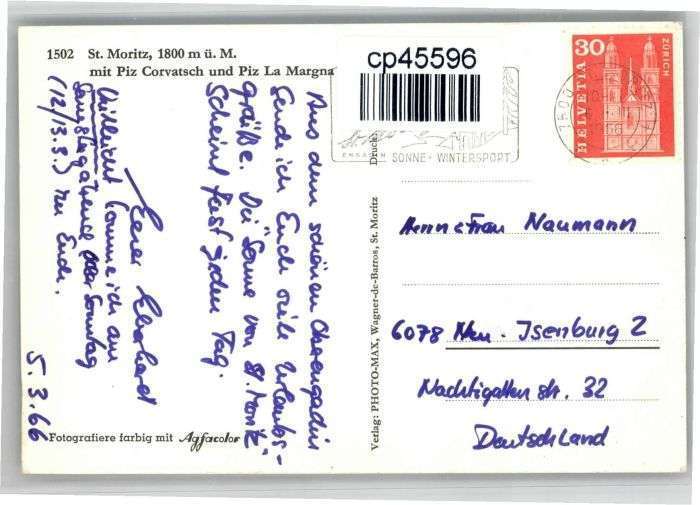 1502 St. Moritz, 1800 m ü. M.
mit Piz Corvatsch und Piz La Margna
cp45596
HELVETIA
30
ZÜRICH
SONNE + WINTERSPORT
Druck:
Aus dem schönen Oberengadin
sende ich Euch viele Urlaubs-
grüße. Die "Sonne von St. Moritz"
scheint fast jeden Tag.
Euer Eberhard
Vielleicht komme ich am
Samstagabend oder Sonntag
(12/13.3.) zu Euch.
5.3.66
Verlag: PHOTO-MAX, Wagner-de-Barros, St. Moritz
Herrn & Frau Naumann
6078 Neu-Isenburg 2
Nachtigallenstr. 32
Deutschland
Fotografiere farbig mit Agfacolor